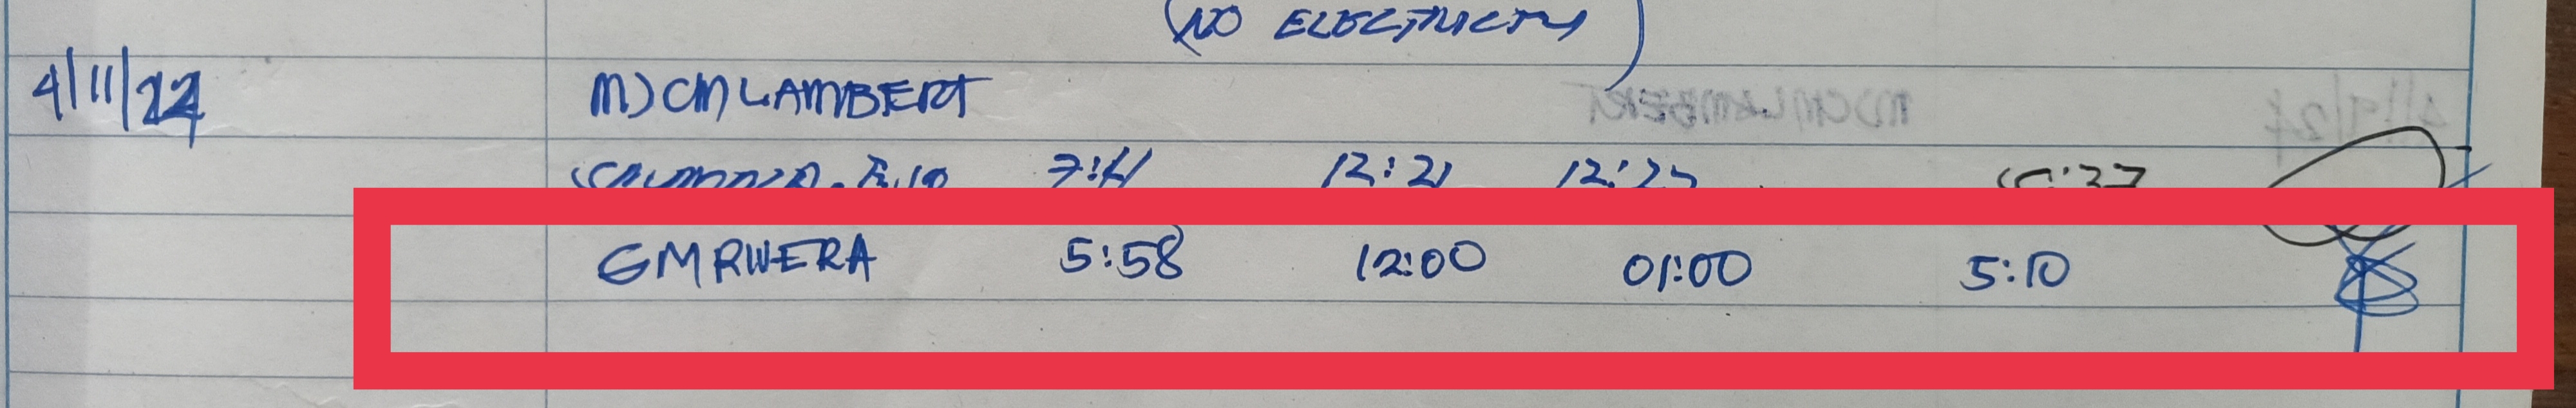 (NO ELECTRICITY)
4/11/24 MJCMLAMBERT
7:41 12:21
GMRWERA 5:58 12:00 01:00 5:10